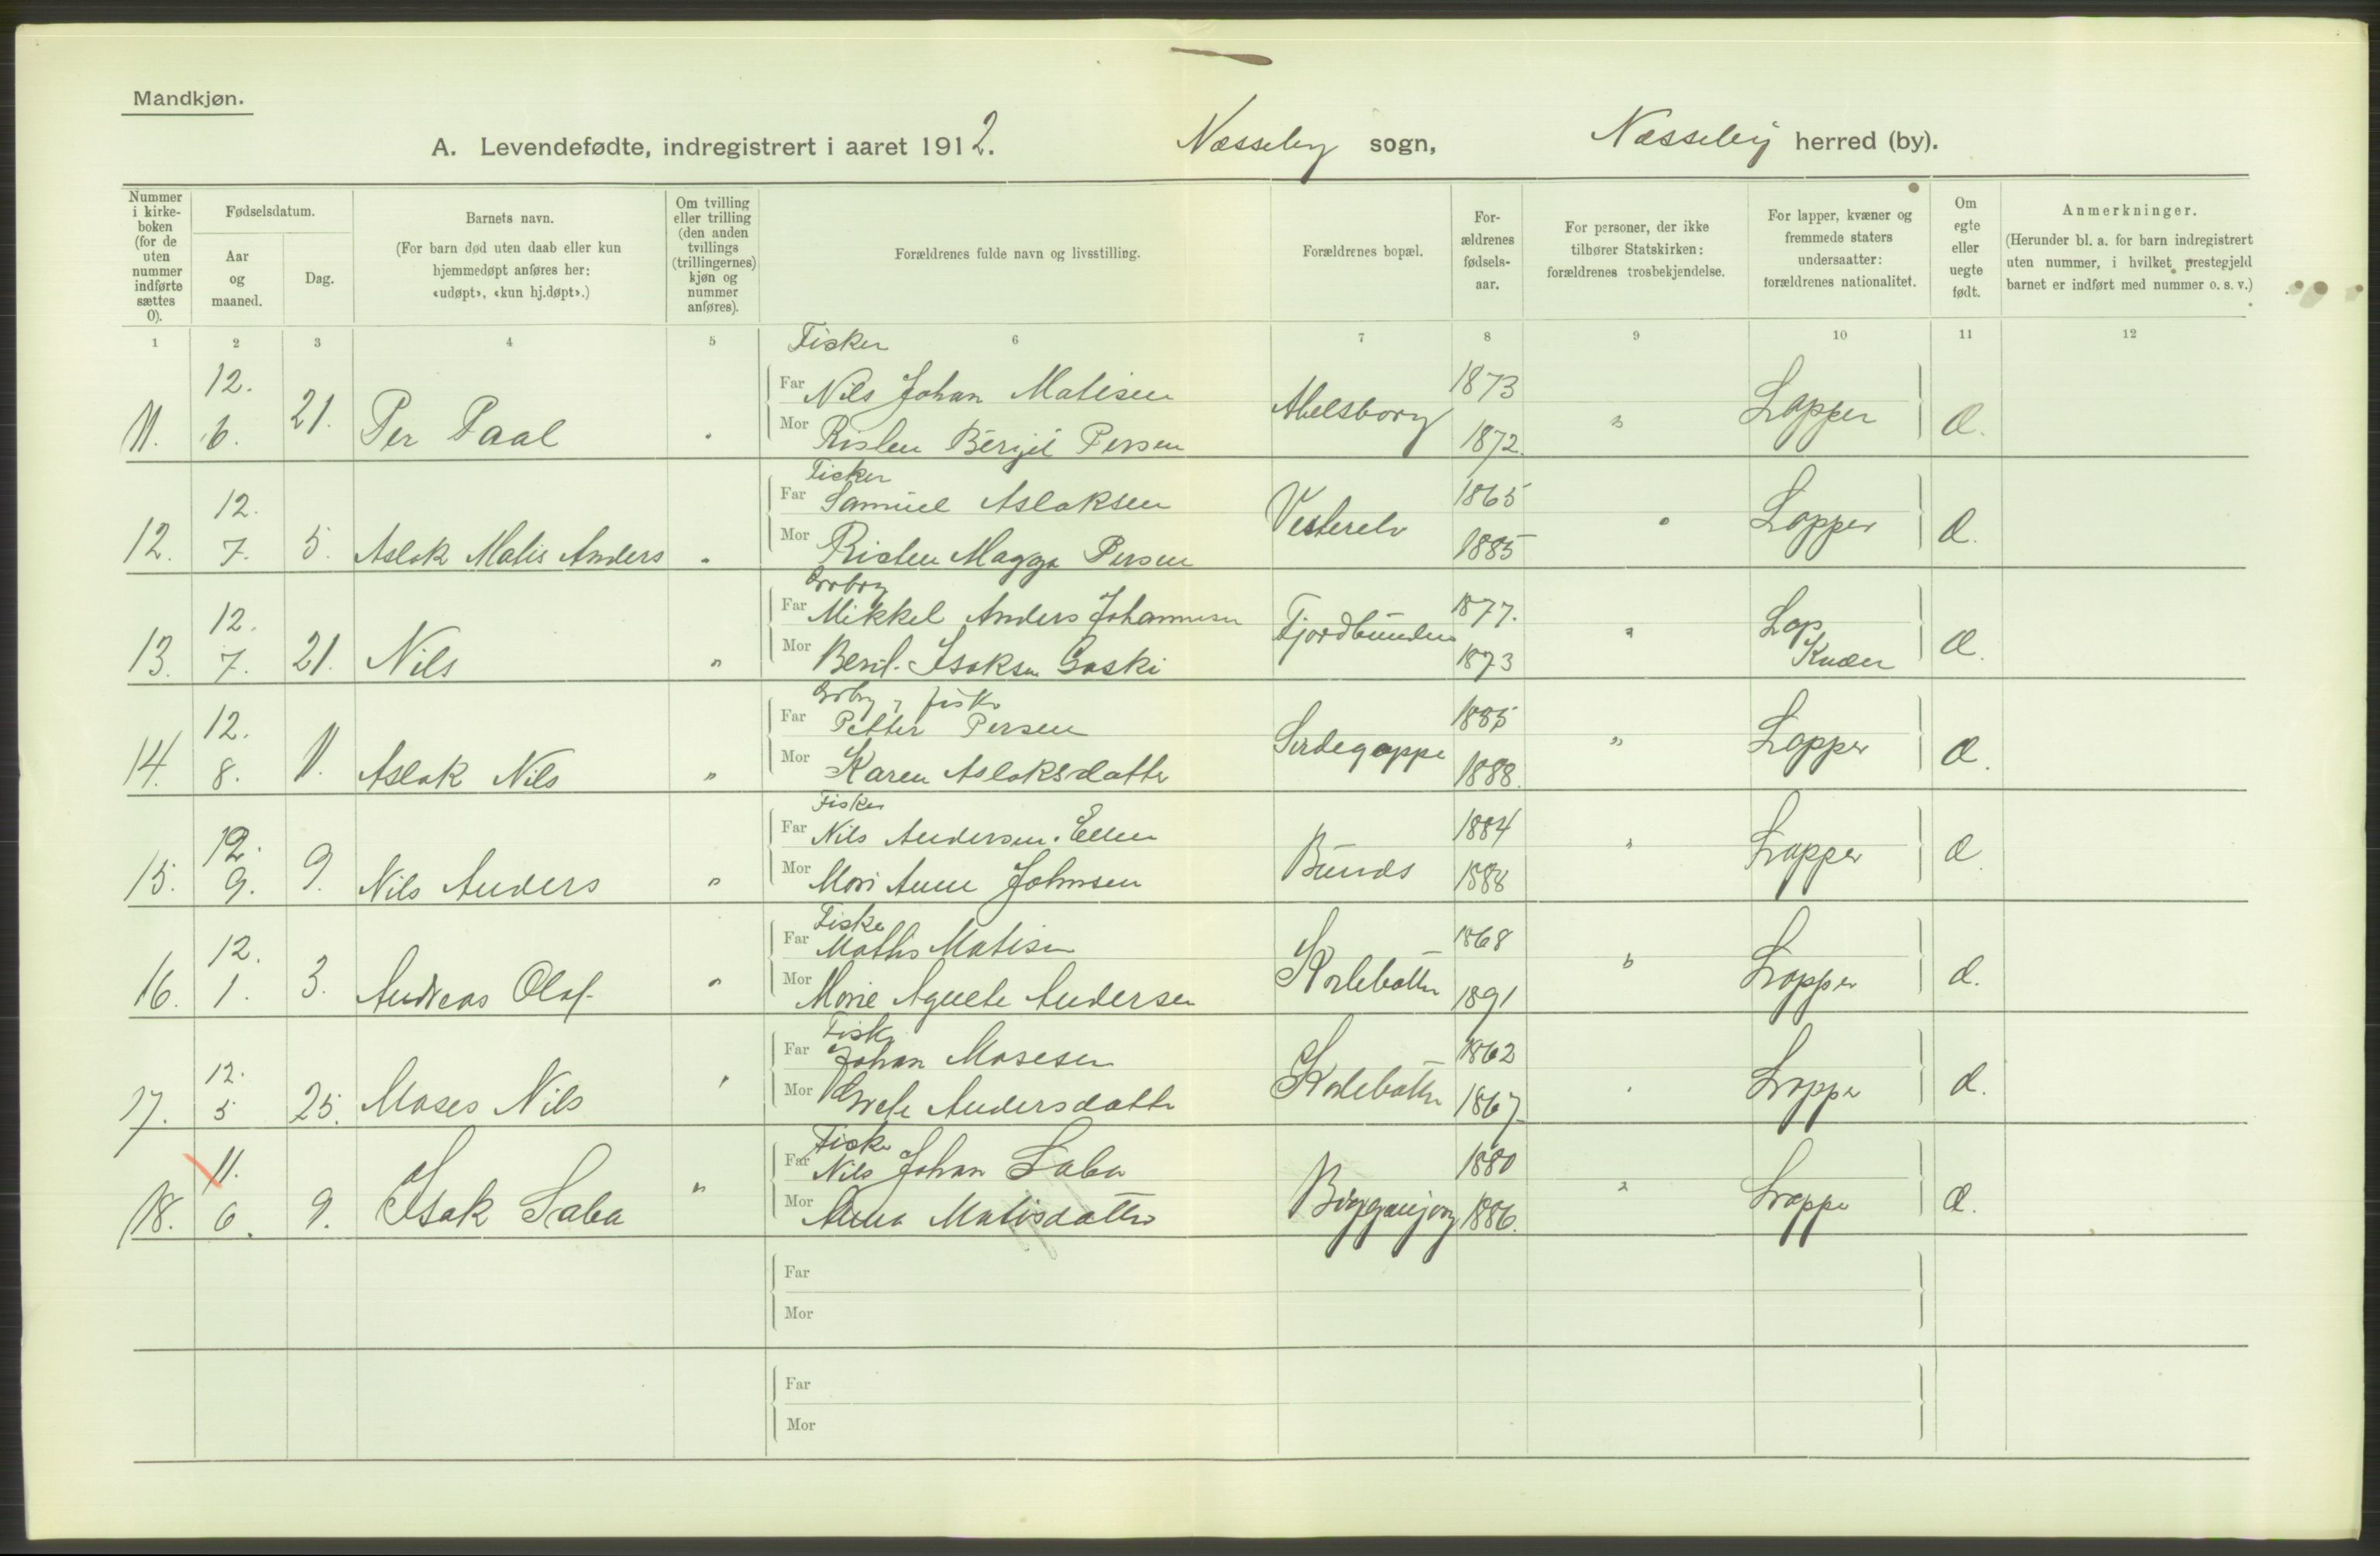 Mandkjøn.
A. Levendefødte, indregistrert i aaret 1912. Næsseby sogn, Næsseby herred (by).
Nummer i kirke-boken (for de uten nummer indførte sættes 0).
Fødselsdatum.
Aar og maaned.
Dag.
Barnets navn.
(For barn død uten daab eller kun hjemmedøpt anføres her: «udøpt», «kun hj.døpt».)
Om tvilling eller trilling (den anden tvillings (trillingernes) kjøn og nummer anføres).
Forældrenes fulde navn og livsstilling.
Forældrenes bopæl.
For-ældrenes fødsels-aar.
For personer, der ikke tilhører Statskirken: forældrenes trosbekjendelse.
For lapper, kvæner og fremmede staters undersaatter: forældrenes nationalitet.
Om egte eller uegte født.
Anmerkninger.
(Herunder bl. a. for barn indregistrert uten nummer, i hvilket prestegjeld barnet er indført med nummer o. s. v.)
1 2 3 4 5 6 7 8 9 10 11 12
Fisker
12. Far Nils Johan Matisen 1873
11. 6. 21. Per Paal Abelsborg " Lapper Æ.
Mor Risten Bergit Persen 1872.
Fisker
12. Far Samuel Aslaksen 1865
12. 7. 5. Aslak Matis Anders " Vesterelv " Lapper Æ.
Mor Risten Magga Persen 1885
12. Far Mikkel Anders Johannesen 1877.
13. 7. 21. Nils " Fjordbunden " Lap Kvæn Æ.
Mor Berit Isaksen Gaski 1873
fisker
12. Far Petter Persen 1885
14. 8. 11. Aslak Nils " " Lapper Æ.
Mor Karen Aslaksdatter 1888.
Fisker
12. Far Nils Andersen. Ellen 1884
15. 9. 9. Nils Anders " Bunds " Lapper Æ
Mor Mari Anne Johnsen 1888
Fisker
12. Far Mathis Matisen 1868
16. 1. 3. Andreas Olaf. " " Lapper Æ.
Mor Marie Agnete Andersen 1891
Fisker
12. Far Johan Mosesen 1862
17. 5 25. Moses Nils " " Lapper Æ.
Mor Grete Andersdatter 1867
Fisker
11. Far Nils Johan Saba 1880
18. 6. 9. Isak Saba " " Lapper Æ.
Mor Anna Matisdatter 1886.
Far
Mor
Far
Mor